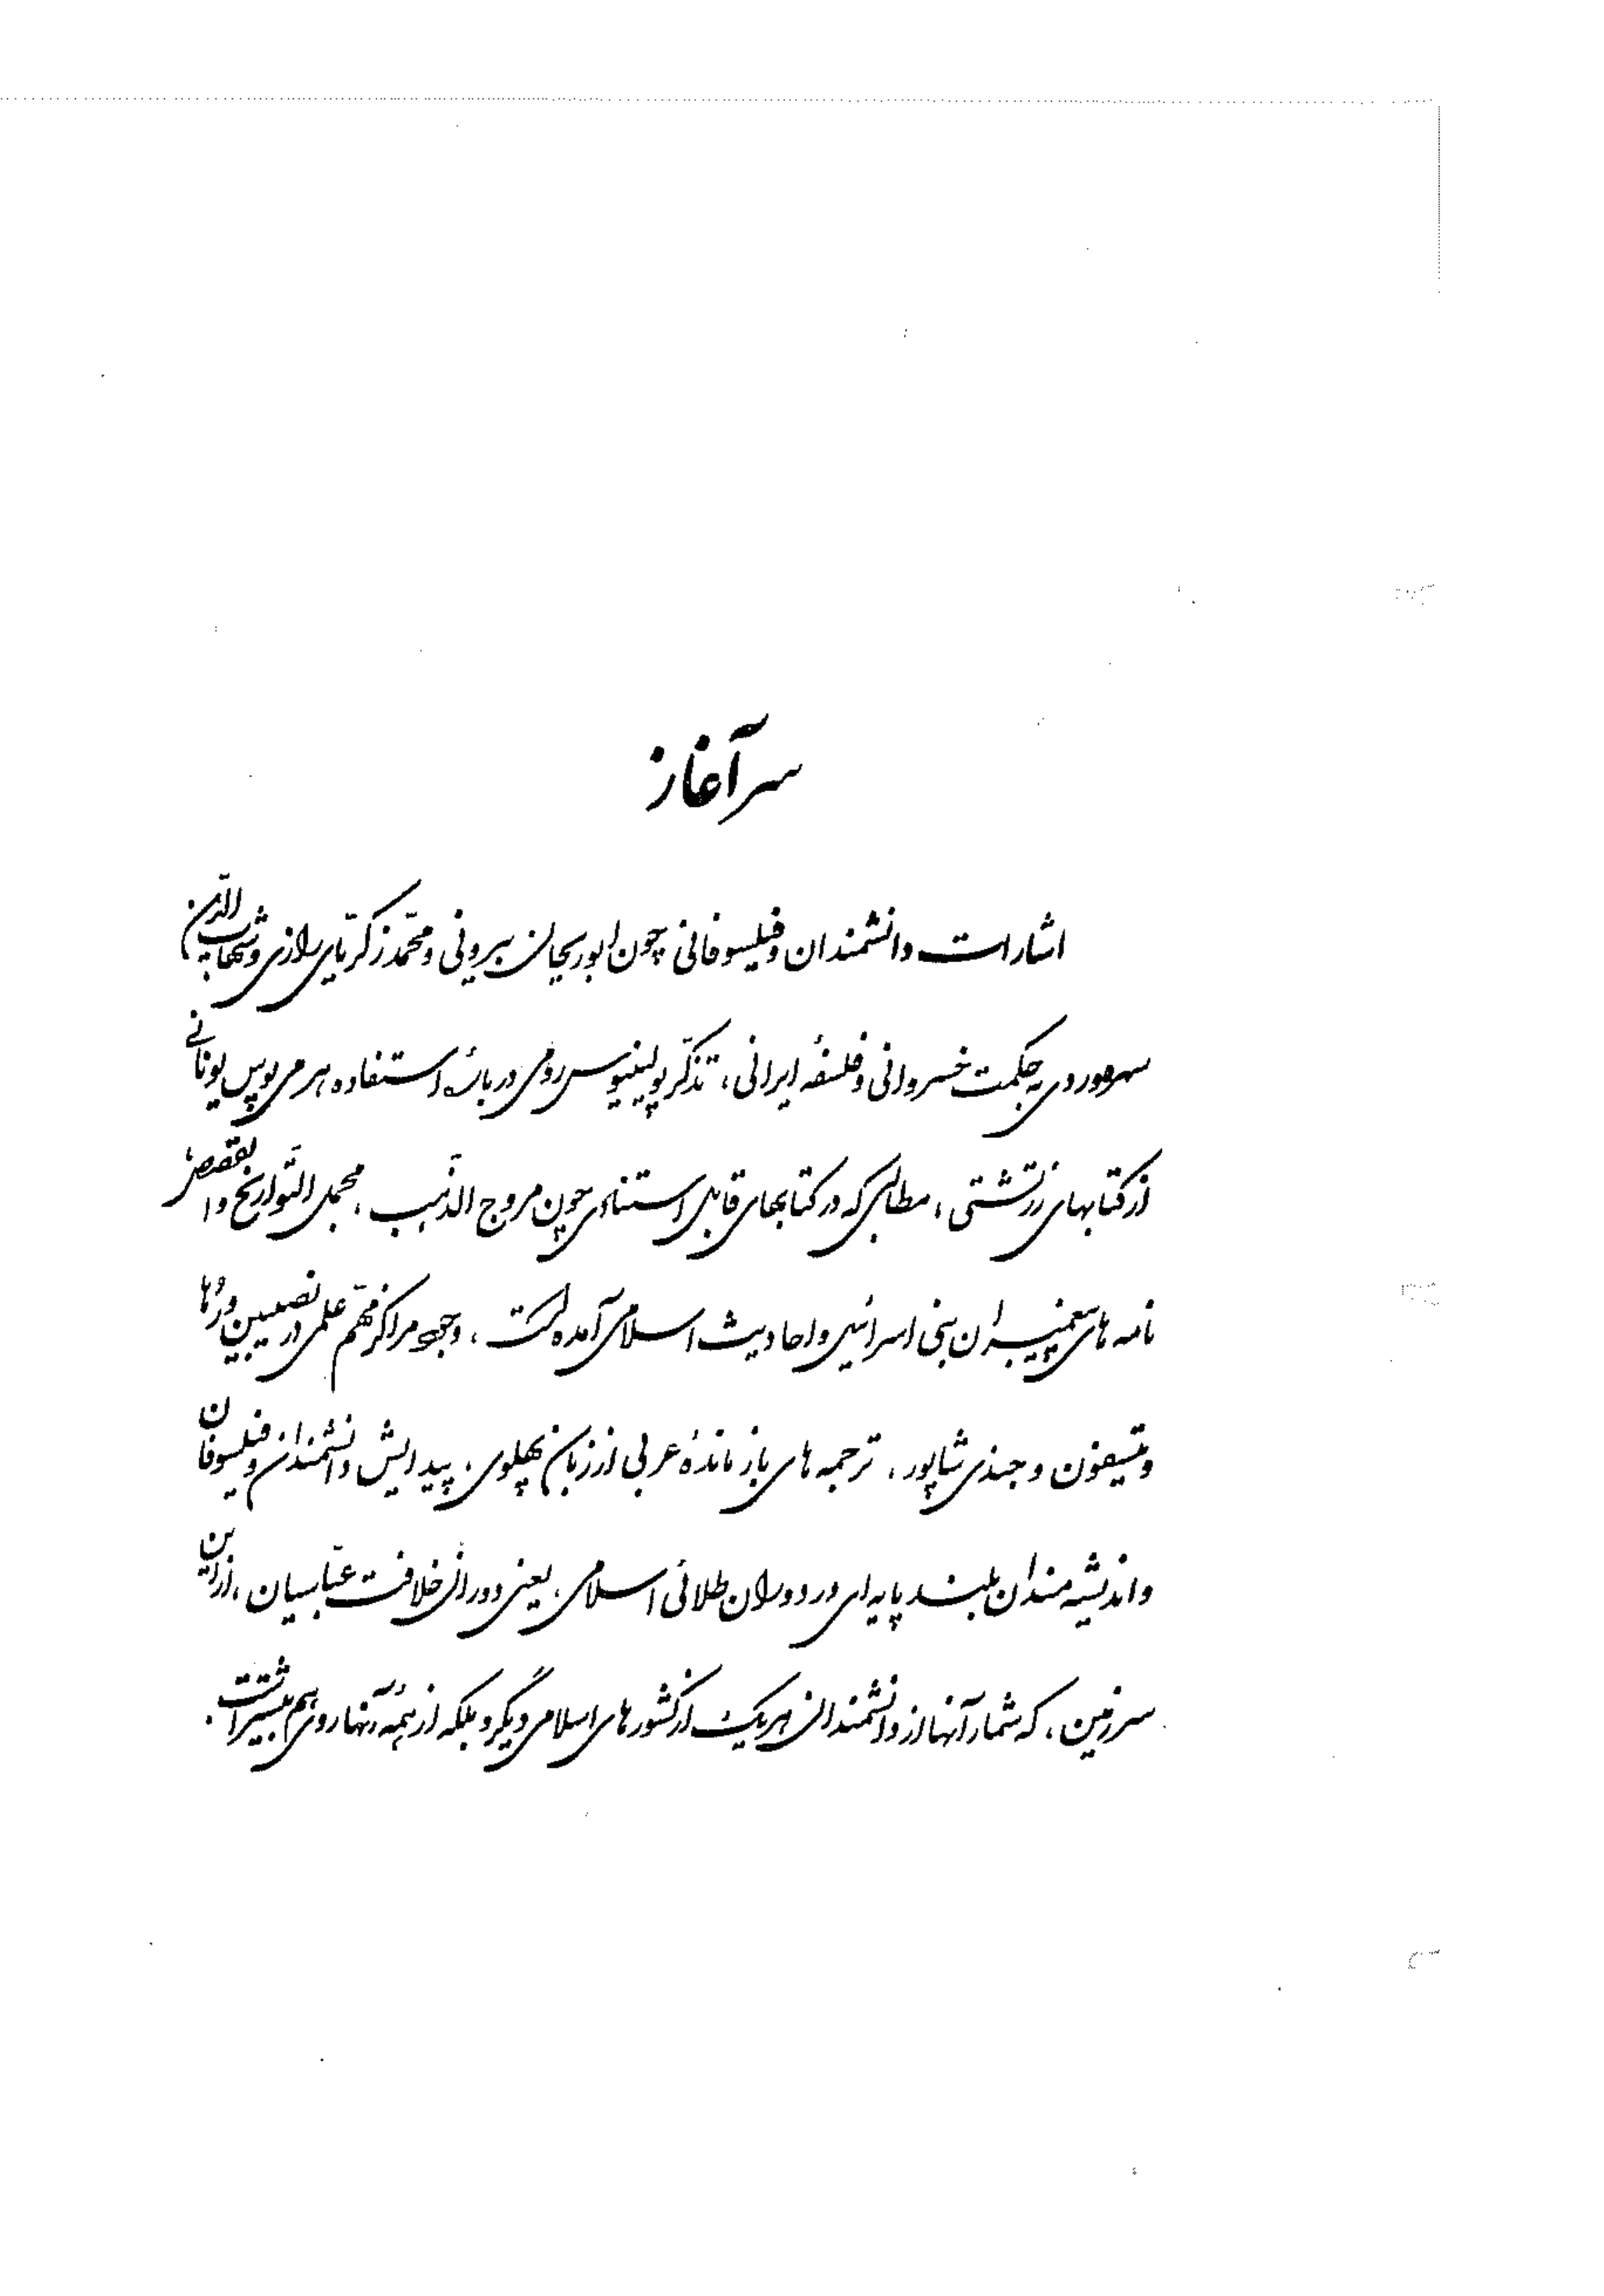 سرآغاز
اشارات دانشمندان و فیلسوفانی چون ابوریحان بیرونی و محمّد زکریّای رازی و شهاب الدّین
سهروردی به حکمت خسروانی و فلسفهٔ ایرانی، تذکّر پولینیوس رومی دربارهٔ استفاده هرمی پوس یونانی
از کتابهای زرتشتی، مطالبی که در کتابهای قابل استنادی چون مروج الذّهب، مجمل التّواریخ والقصص،
نامه های پیمبران بنی اسرائیل و احادیث اسلامی آمده است، وجود مراکز مهّم علمی در نصیبین و رُها
و تیسفون و جندی شاپور، ترجمه های باز ماندهٔ عربی از زبان پهلوی، پیدایش دانشمندان و فیلسوفان
و اندیشه مندان بلند پایه ای در دوران طلائی اسلامی، یعنی دوران خلافت عبّاسیان، از این
سرزمین، که شمار آنها از دانشمندان هر یک از کشورهای اسلامی دیگر و بلکه از همهٔ آنها روی هم بیشتر است.